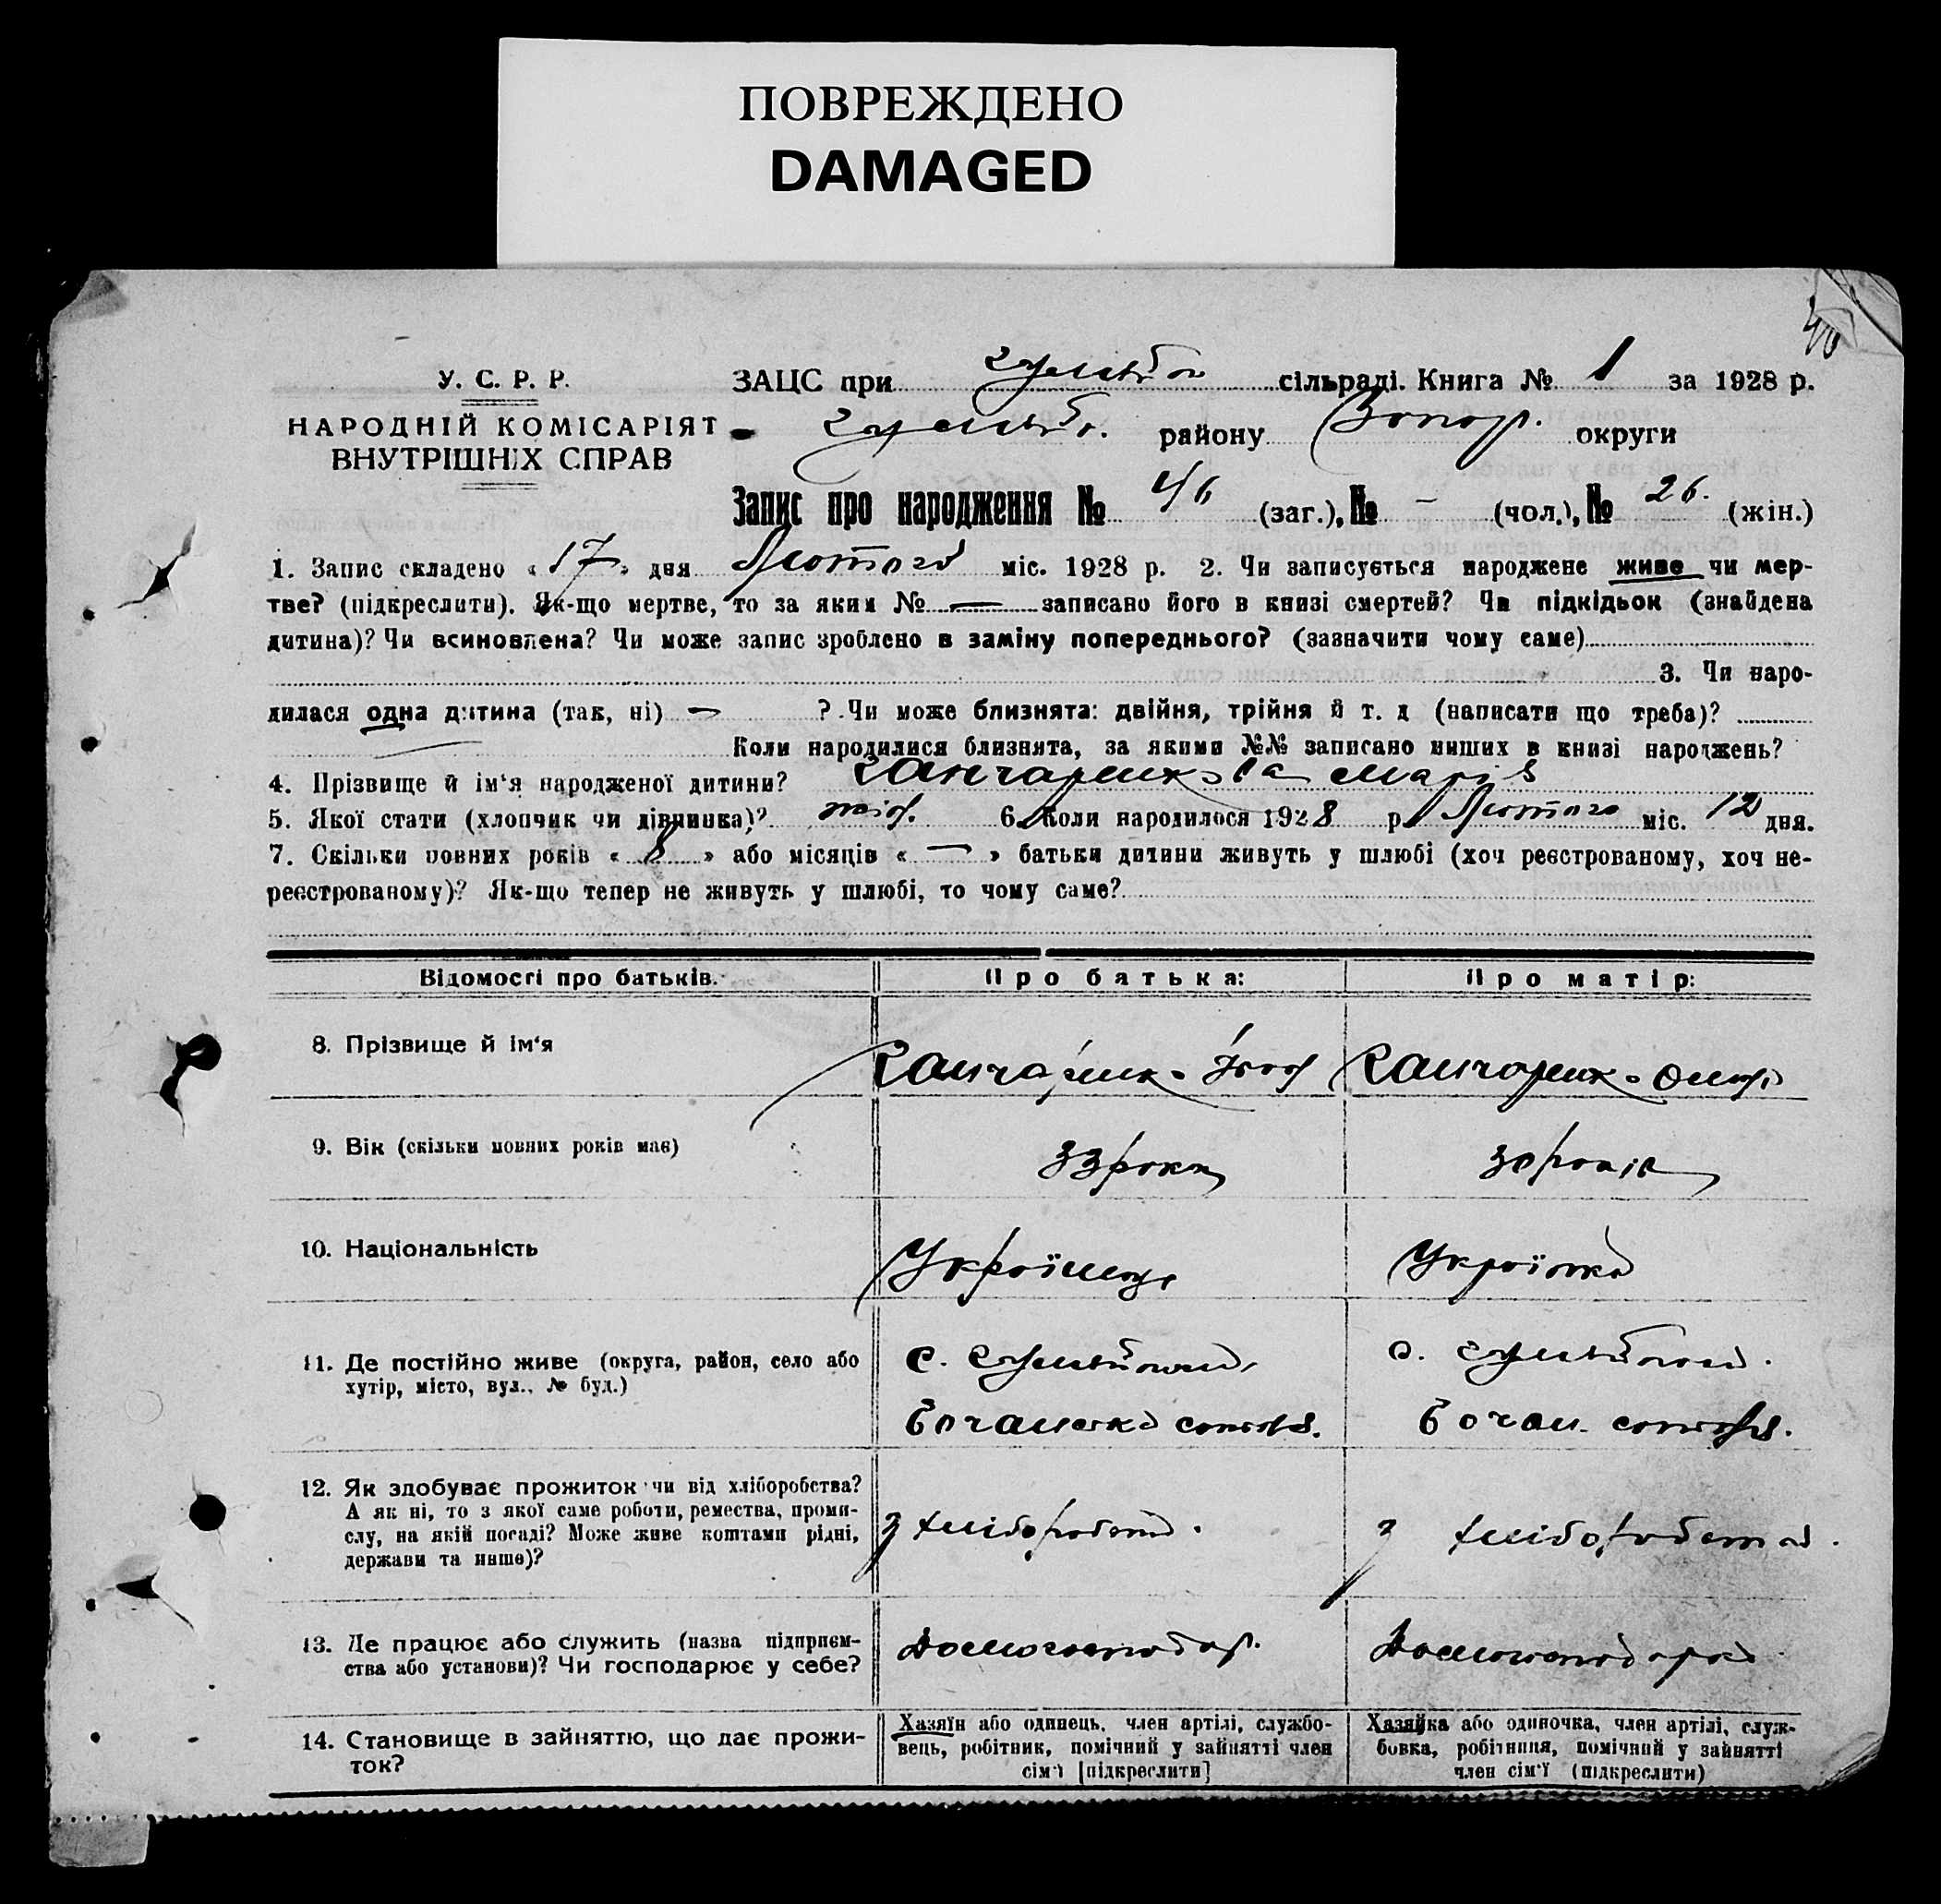 ПОВРЕЖДЕНО
DAMAGED
40
У. С. Р. Р.
НАРОДНІЙ КОМІСАРІЯТ
ВНУТРІШНІХ СПРАВ
ЗАЦС при сільраді. Книга № 1 за 1928 р.
району Запор. округи
Запис про народження № 46 (заг.), № – (чол.), № 26. (жін.)
1. Запис складено « 17 » дня Лютого міс. 1928 р. 2. Чи записується народжене живе чи мер-
тве? (підкреслити). Як-що мертве, то за яким № — записано його в книзі смертей? Чи підкідьок (знайдена
дитина)? Чи всиновлена? Чи може запис зроблено в заміну попереднього? (зазначити чому саме)
3. Чи наро-
дилася одна дитина (так, ні) — ? Чи може близнята: двійня, трійня й т. д (написати що треба)?
Коли народилися близнята, за якими №№ записано инших в книзі народжень?
4. Прізвище й ім‘я народженої дитини? Марія
5. Якої стати (хлопчик чи дівчинка)? 6. Коли народилося 1928 р. Лютого міс. 12 дня.
7. Скільки повних років « 8 » або місяців « — » батьки дитини живуть у шлюбі (хоч реєстрованому, хоч не-
реєстрованому)? Як-що тепер не живуть у шлюбі, то чому саме?
Відомості про батьків. Про батька: Про матір:
8. Прізвище й ім‘я
9. Вік (скільки повних років має) 33 роки 30 років
10. Національність Українець Українка
11. Де постійно живе (округа, район, село або
хутір, місто, вул., № буд.) с. с.
12. Як здобуває прожиток чи від хліборобства?
А як ні, то з якої саме роботи, ремества, проми-
слу, на якій посаді? Може живе коштами рідні,
держави та инше)? з хлібороботи. з хлібороботи.
13. Де працює або служить (назва підприєм-
ства або установи)? Чи господарює у себе? Домогосподар. Домогосподарка
14. Становище в зайняттю, що дає прожи-
ток?
Хазяїн або одинець, член артілі, службо-
вець, робітник, помічний у зайнятті член
сім‘ї [підкреслити]
Хазяйка або одиночка, член артілі, служ-
бовка, робітниця, помічний у зайнятті
член сім‘ї (підкреслити)